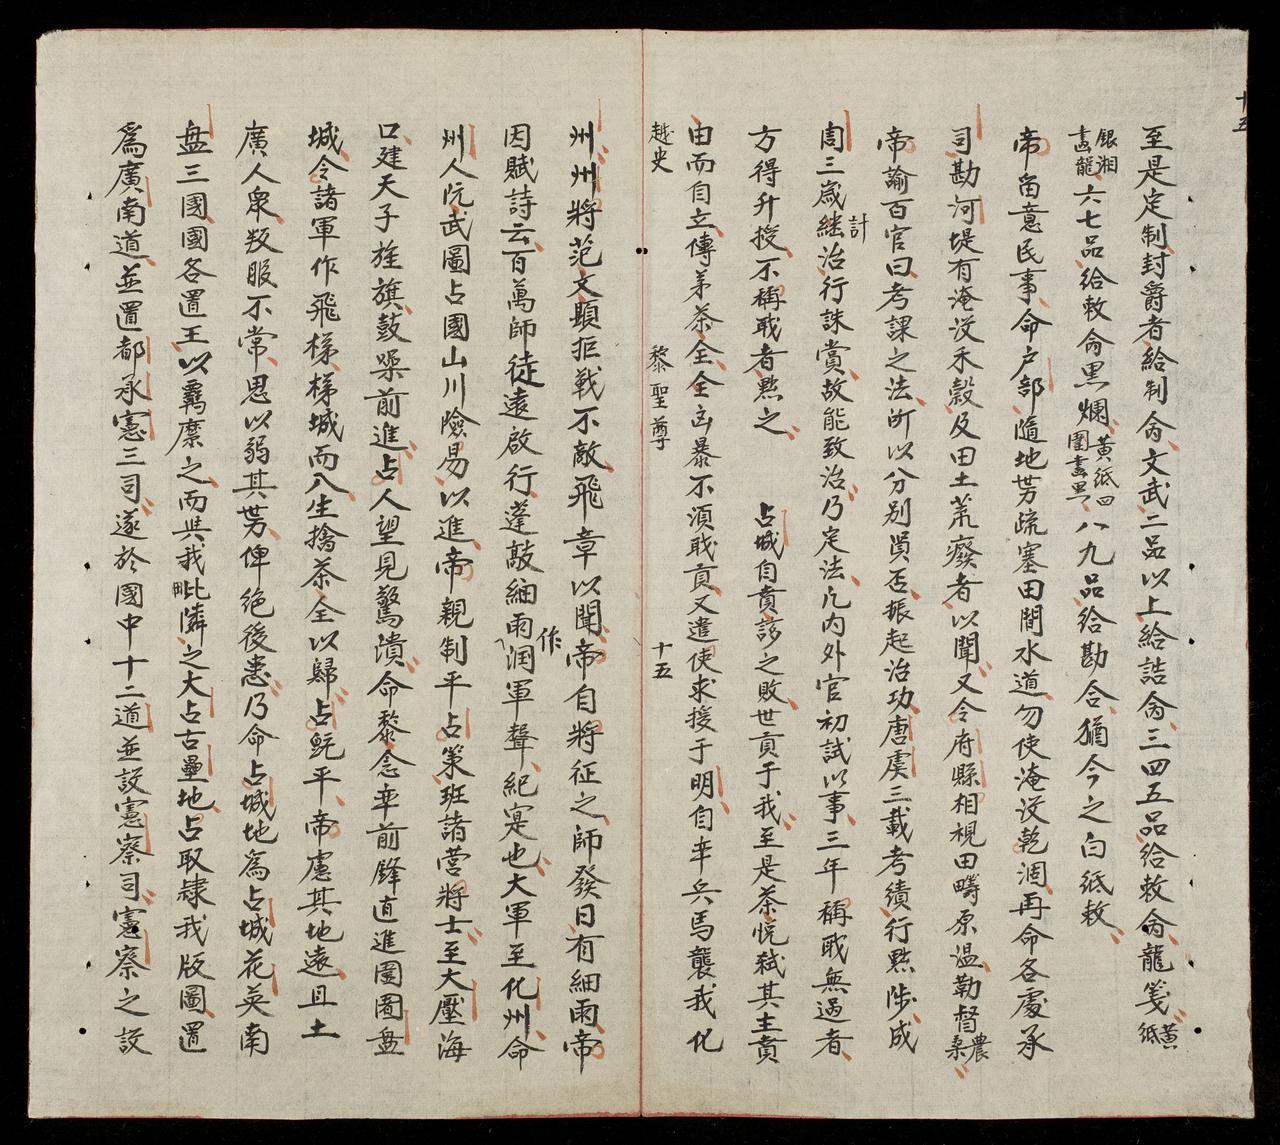 至是定制封爵者給制侖文武二品以上給誥侖三四五品給敕侖龍箋黃紙
銀湘畫龍六七品給敕侖黑爛黃紙四圍畫黑八九品給勘合猶今之白紙敕
帝畱意民事命户部隨地势疏塞田間水道勿使淹没乾涸再命各處承
司勘河堤有淹没禾穀及田土荒癈者以聞又令府縣相視田疇原溫勒督農桑
帝諭百官曰考課之法所以分別贤否振起治功唐虞三載考績行黜陟成
周三歲継計治行誅賞故能致治乃定法凡內外官初試以事三年稱職無過者
方得升授不稱職者黜之 占城自賁該之敗世貢于我至是茶悦弒其主賁
由而自立傳弟茶全全凶暴不湏職貢又遣使求援于明自率兵馬襲我化
越史 黎聖尊 十五
州州將范文顕拒戰不敵飛章以聞帝自將征之師發日有細雨帝
因賦詩云百萬師徒遠啟行蓬敲細雨作润軍聲紀寔也大軍至化州命
州人阮武圖占國山川險易以進帝親制平占策班諸营將士至大壓海
口建天子旌旗鼓噪前進占人望見驚潰命黎念率前鋒直進圍闍盤
城令諸軍作飛梯梯城而入生擒茶全以歸占既平帝慮其地遠且土
廣人衆叛服不常思以弱其势俾絶後患乃命占城地為占城花英南
盘三國國各置王以羈縻之而與我毗隣之大占古壘地占取隷我版圖置
為廣南道並置都承憲三司遂於國中十二道並設憲察司憲察之設
十五